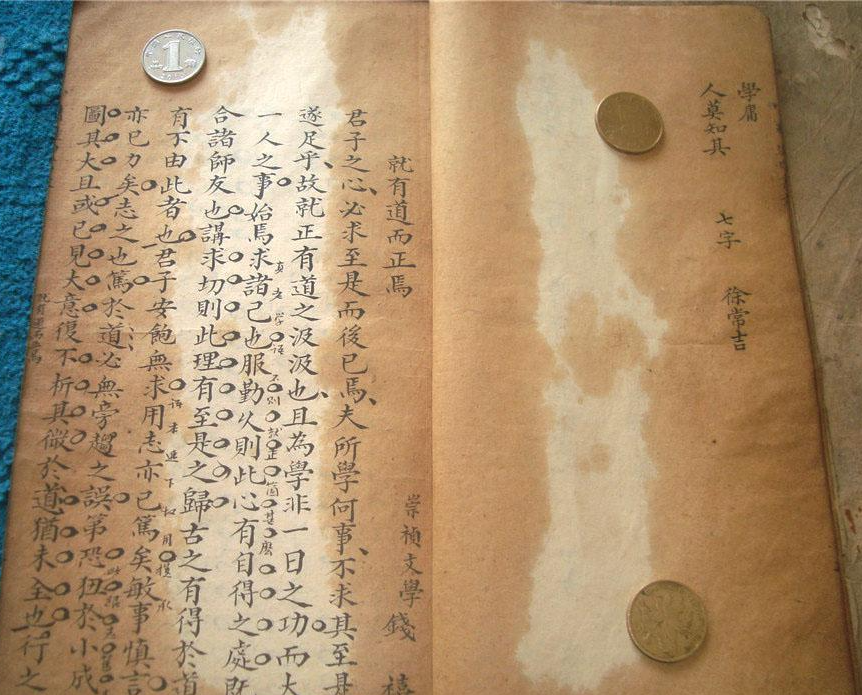 學庸
人莫知其
七字
徐常吉
就有道而正焉
崇禎文學錢禧
君子之心必求至是而後已焉夫所學何事不求其至是
遂足乎故就正有道之汲汲也且為學非一日之功而大
一人之事始焉求諸己也服勤久則此心有自得之處既
就正箇甚麼
合諸師友也講求切則此理有至是之歸古之有得於道
有不由此者也君子安飽無求用志亦已篤矣敏事慎言
亦已力矣志之也篤於道必無旁趨之誤第恐狃於小成
圖其大且或已見大意復不析其微於道猶未全也行之
就有道而正焉
1